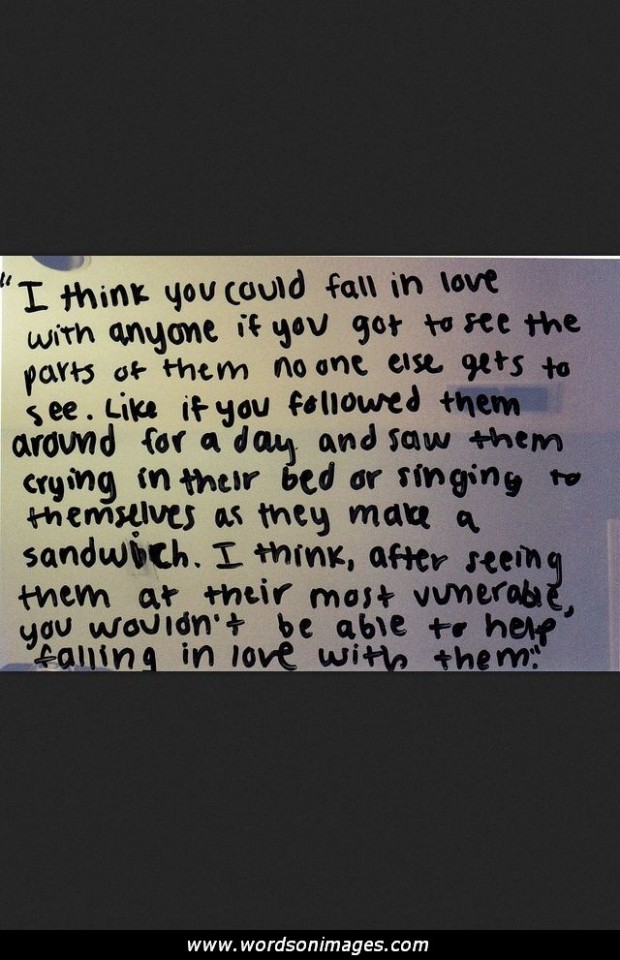 "I think you could fall in love
with anyone if you got to see the
parts of them no one else gets to
see. Like if you followed them
around for a day and saw them
crying in their bed or singing to
themselves as they make a
sandwich. I think, after seeing
them at their most vunerable,
you wouldn't be able to help
falling in love with them."
www.wordsonimages.com